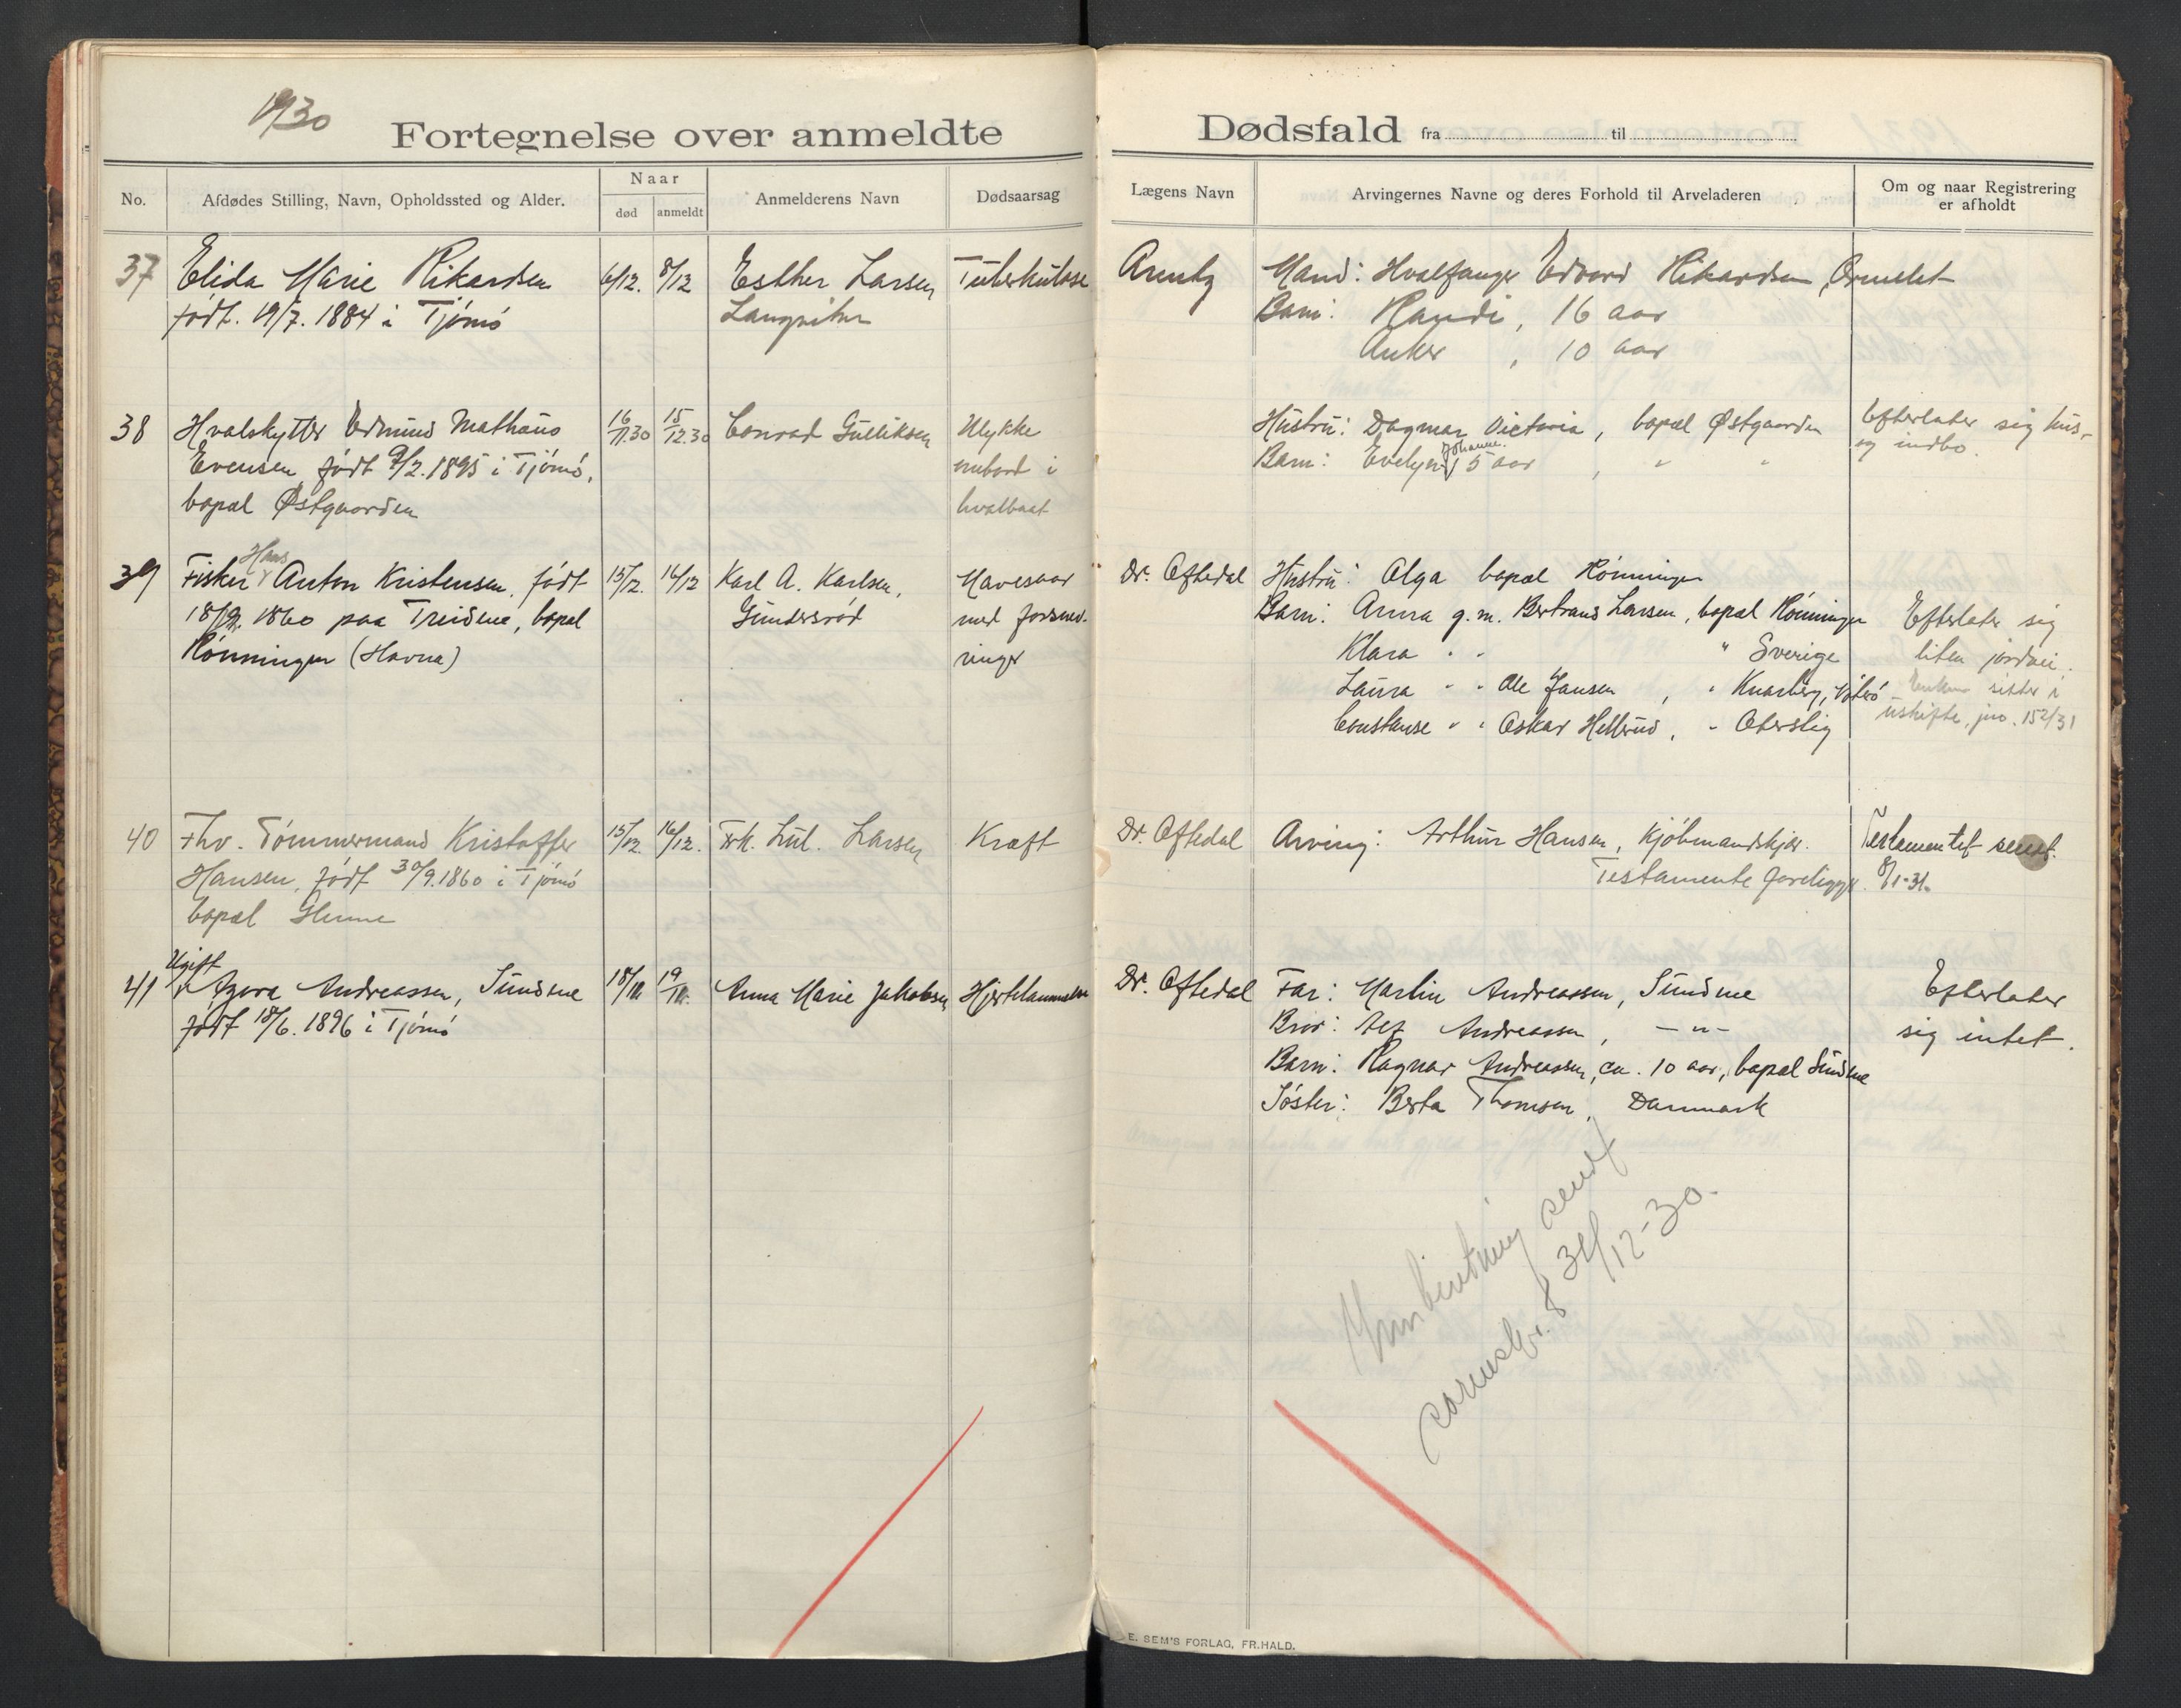 1930
Fortegnelse over anmeldte
Dødsfald fra til
No.
Afdødes Stilling, Navn, Opholdssted og Alder.
Naar
død
anmeldt
Anmelderens Navn
Dødsaarsag
Lægens Navn
Arvingernes Navne og deres Forhold til Arveladeren
Om og naar Registrering
er afholdt
37 Elida Marie Rikardsen 6/12. 8/12 Esther Larsen Tuberkulose
født. 19/7. 1884 i Tjømø
Mand: Hvalfanger Edvard Rikardsen, Ormelet
Barn: Randi, 16 aar
Anker, 10 aar
38 Hvalskytter Edmund Mathæus 16/11.30 15/12.30 Conrad Gulliksen Ulykke
Evensen, født 9/2. 1895 i Tjømø, ombord i
bopæl Østgaarden hvalbaat
Hustru: Dagmar Victoria, bopæl Østgaarden
Barn: Evelyn Johanne 15 aar, " "
Efterlater sig hus
og indbo.
39 Fisker Hans Anton Kristensen, født 15/12. 16/12 Karl A. Karlsen, Mavesaar
1860 paa Treidene, bopæl Gundersrød med forsnev-
Rønningen (Havna) ringer
Dr. Oftedal Hustru: Olga bopæl Rønningen
Barn: Anna g.m. Bertrand Larsen, bopæl Rønningen
Klara " " " Sverige
Laura " " Ole Jansen, " Knarberg, Nøterø
Constanse " " Oskar Hellerud, "
Efterlater sig
liten jordvei.
Enken sitter i
uskifte, jno. 152/31
40 Fhv. Tømmermand Kristoffer 15/12. 16/12. Frk. Lul. Larsen Kræft
Hansen, født 30/9. 1860 i Tjømø
bopæl Glenne
Dr. Oftedal Arving: Arthur Hansen, Kjøbmandskjær.
Testamente foreligger.
Testamentet sendt
8/1-31.
41 Ugift Agora Andreassen, Sundene 18/12 19/12. Anna Marie Jakobsen Hjertelammelse
født 18/6. 1896 i Tjømø
Dr. Oftedal Far: Martin Andreassen, Sundene
Bror: Alf Andreassen, — " —
Barn: Ragnar Andreassen, ca. 10 aar, bopæl Sundene
Søster: Berta Thomsen, Danmark
Efterlater
sig intet.
sendt
31/12-30.
E. SEM'S FORLAG, FR.HALD.